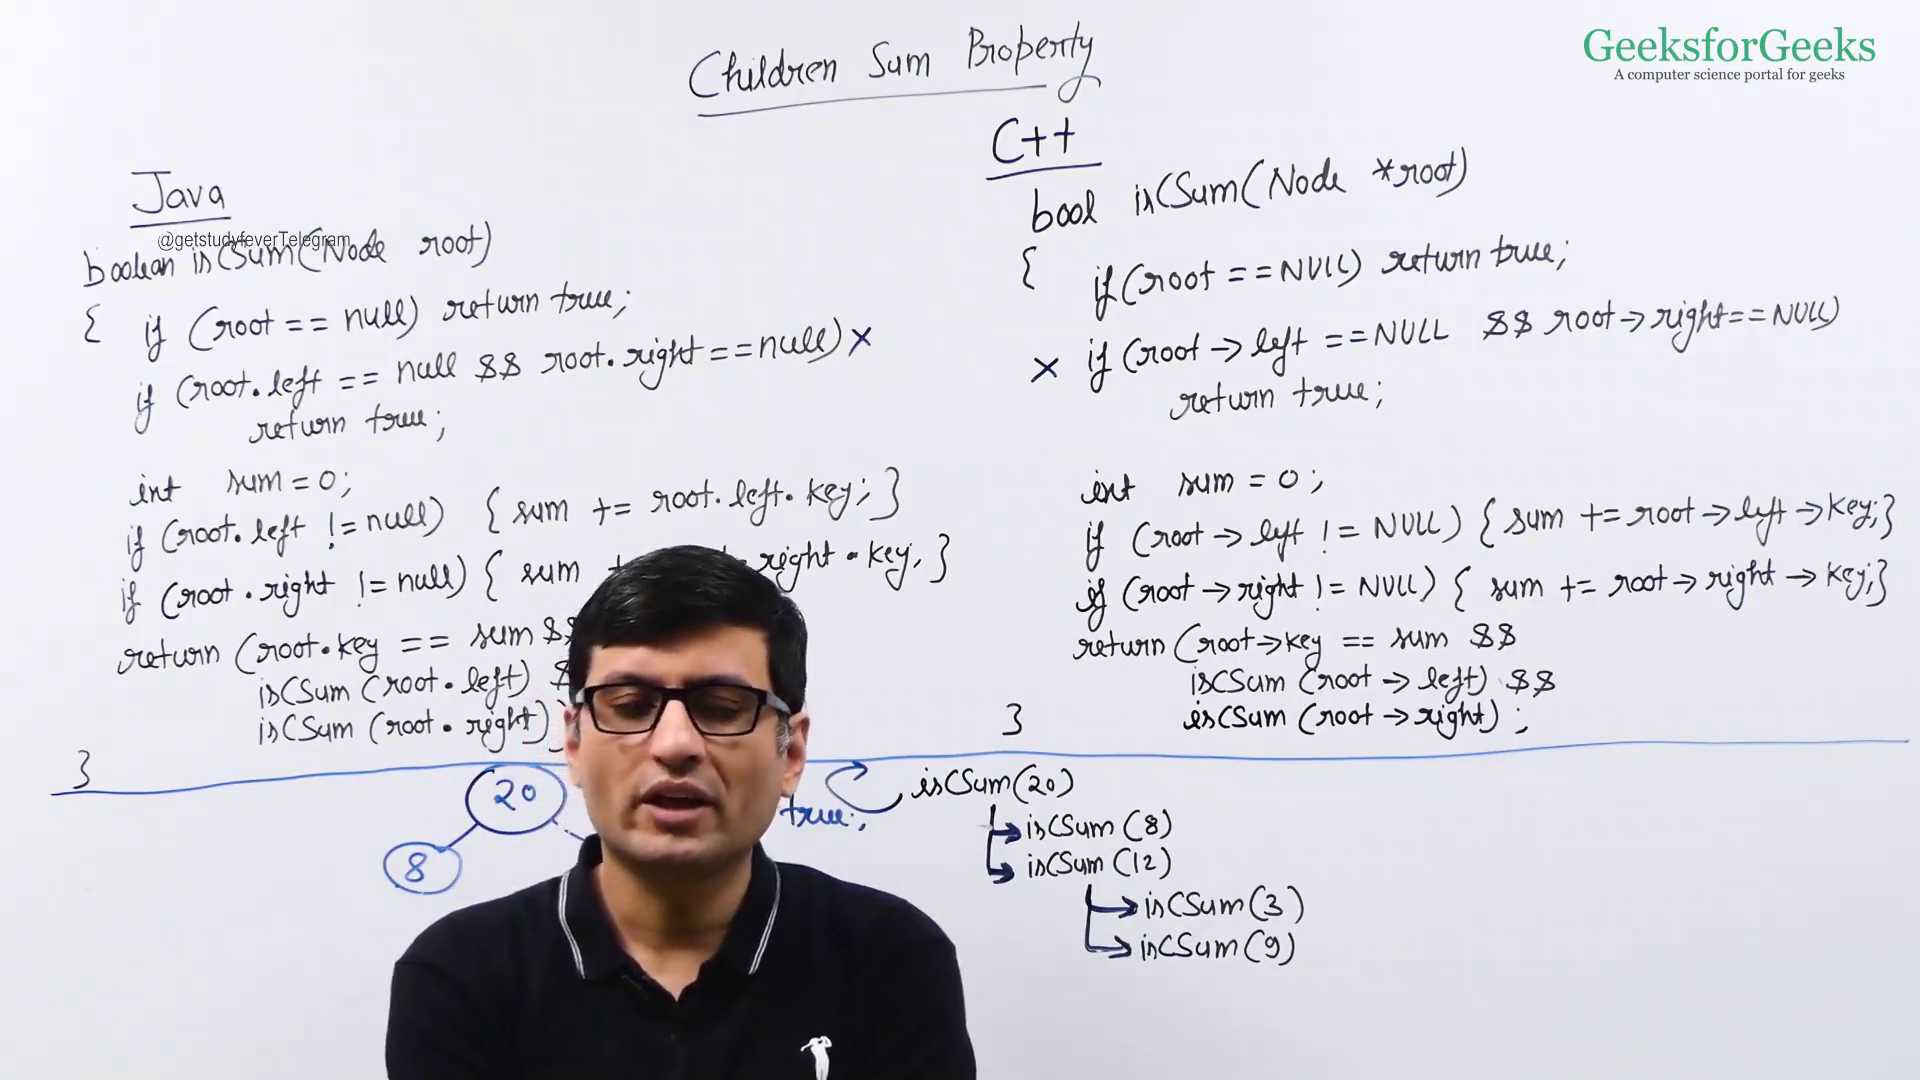 Children Sum Property
GeeksforGeeks
A computer science portal for geeks
Java
@getstudyfeverTelegram
boolean isCSum(Node root)
{ if (root == null) return true;
if (root.left == null && root.right == null) X
return true;
int sum = 0;
if (root.left != null) { sum += root.left.key; }
if (root.right != null) { sum right.key; }
return (root.key == sum &&
isCSum (root.left)
isCSum (root.right)
}
C++
bool isCSum(Node *root)
{ if (root == NULL) return true;
X if (root → left == NULL && root → right == NULL)
return true;
int sum = 0;
if (root → left != NULL) { sum += root → left → key; }
if (root → right != NULL) { sum += root → right → key; }
return (root → key == sum &&
isCSum (root → left) &&
isCSum (root → right) ;
}
20
8
true;
isCSum(20)
isCSum (8)
isCSum (12)
isCSum(3)
isCSum(9)